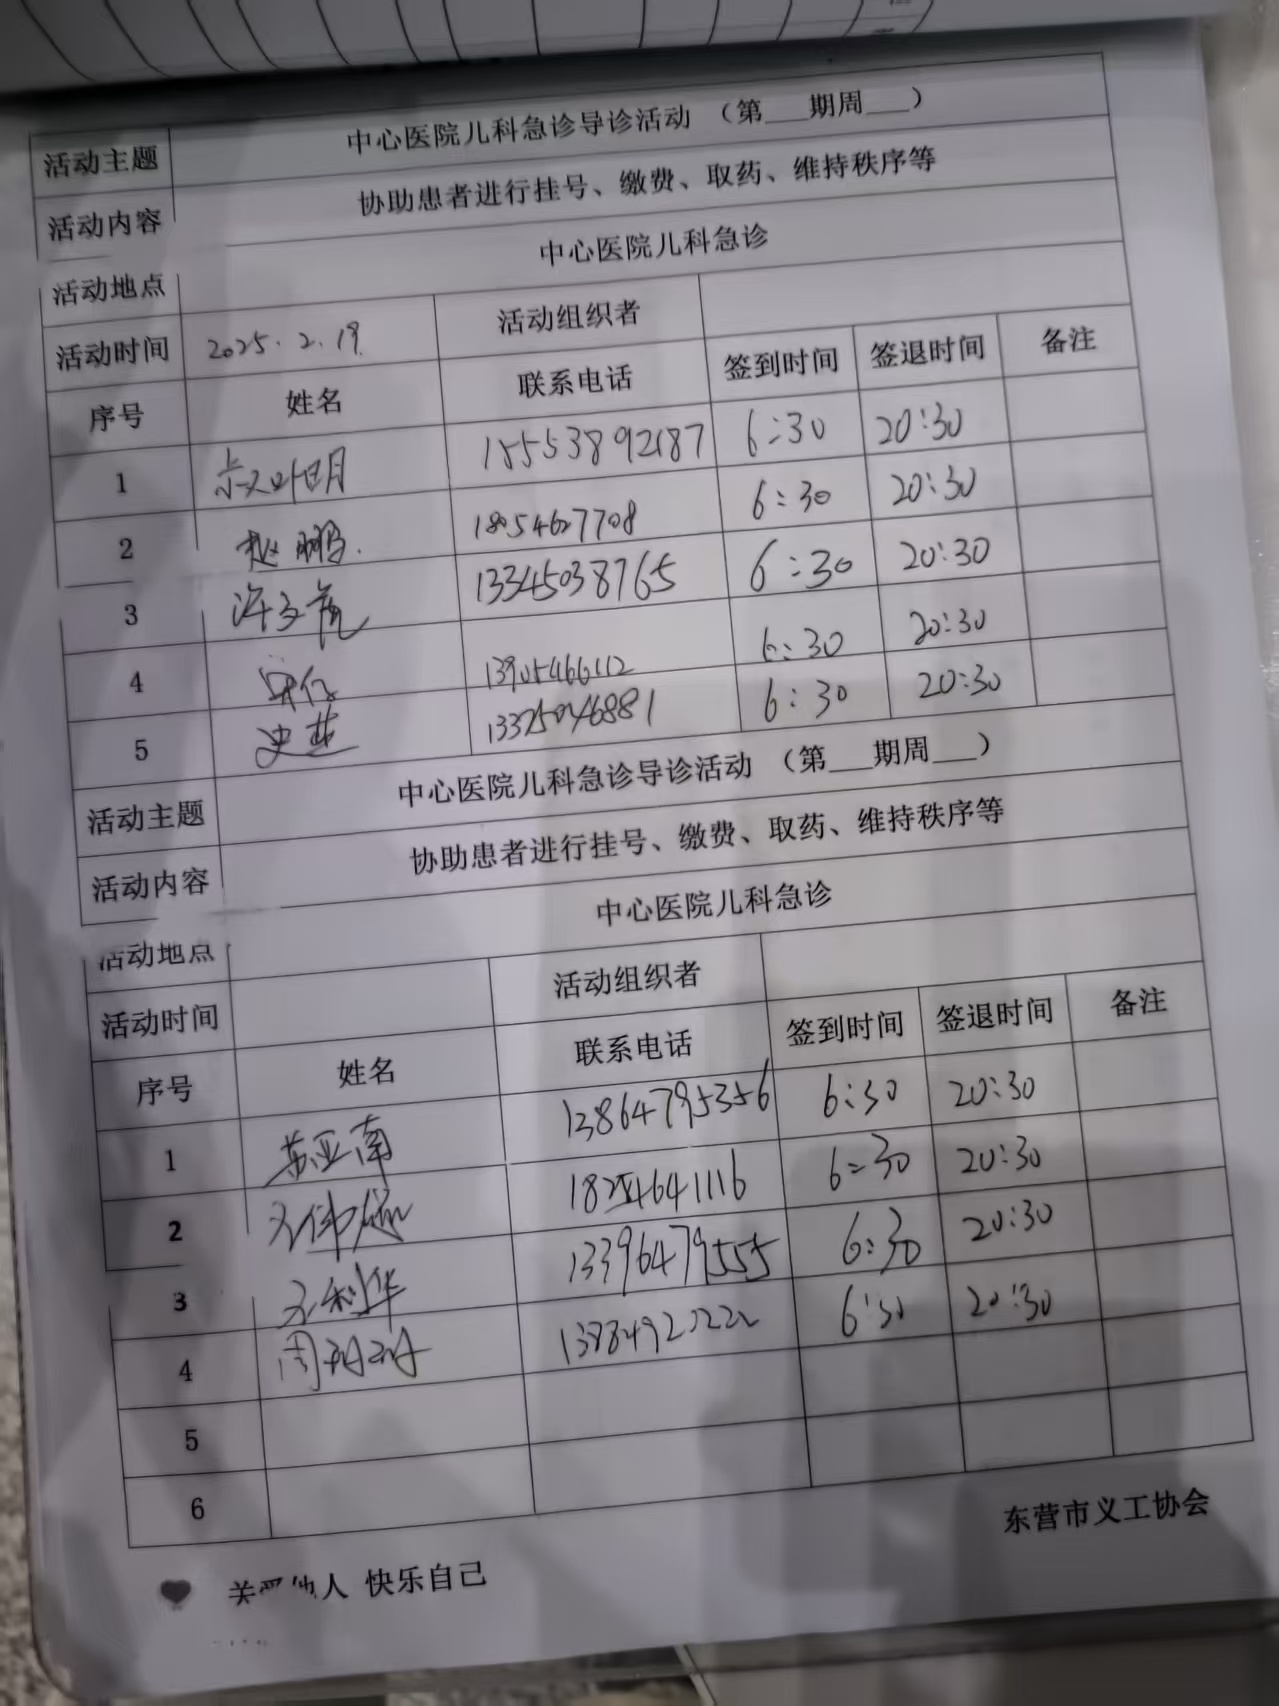 活动主题 中心医院儿科急诊导诊活动 （第___期周___）
活动内容 协助患者进行挂号、缴费、取药、维持秩序等
活动地点 中心医院儿科急诊
活动时间 2025.2.19. 活动组织者
序号 姓名 联系电话 签到时间 签退时间 备注
1 15553892187 6:30 20:30
2 赵鹏 18054627708 6:30 20:30
3 13345038765 6:30 20:30
4 13905466112 6:30 20:30
5 史燕 13325046881 6:30 20:30
活动主题 中心医院儿科急诊导诊活动 （第___期周___）
活动内容 协助患者进行挂号、缴费、取药、维持秩序等
活动地点 中心医院儿科急诊
活动时间 活动组织者
序号 姓名 联系电话 签到时间 签退时间 备注
1 苏亚南 13864795356 6:30 20:30
2 18254641116 6:30 20:30
3 13396479555 6:30 20:30
4 6:30 20:30
5
6
东营市义工协会
关爱他人 快乐自己